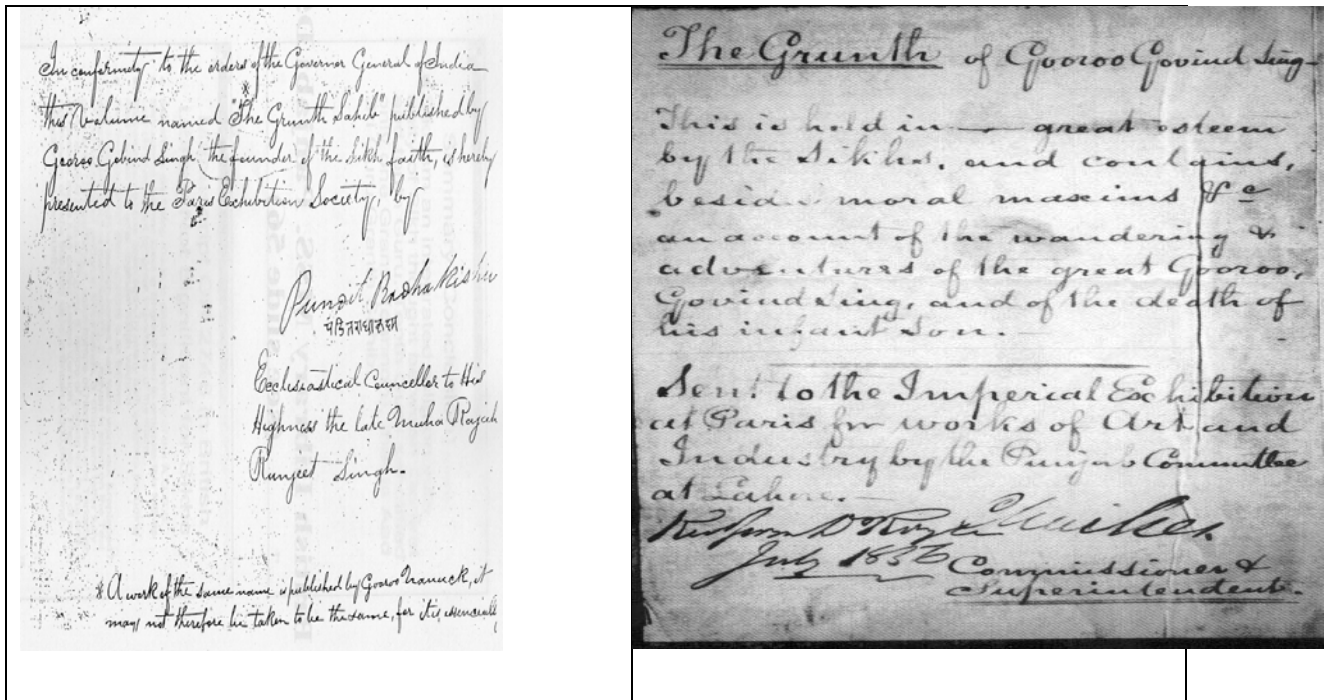 In conformity to the orders of the Governor General of India
this Volume named "The Grunth Sahib" published by
Gooroo Gobind Singh, the founder of the Sikh faith, is hereby
presented to the Paris Exhibition Society, by
Pundit Radha Kishen
Ecclesiastical Councellor to His
Highness the late Muha Rajah
Runjeet Singh.
* A work of the same name is published by Gooroo Nanuck, it
may not therefore be taken to be the same, for it is essencially
The Grunth of Gooroo Govind Sing
This is held in great esteem
by the Sikhs, and contains,
besides moral maxims &c
an account of the wandering &
adventures of the great Gooroo,
Govind Sing, and of the death of
his infant son.
Sent to the Imperial Exhibition
at Paris for works of Art and
Industry by the Punjab Committee
at Lahore.
July 1856
Commissioner &
Superintendent.